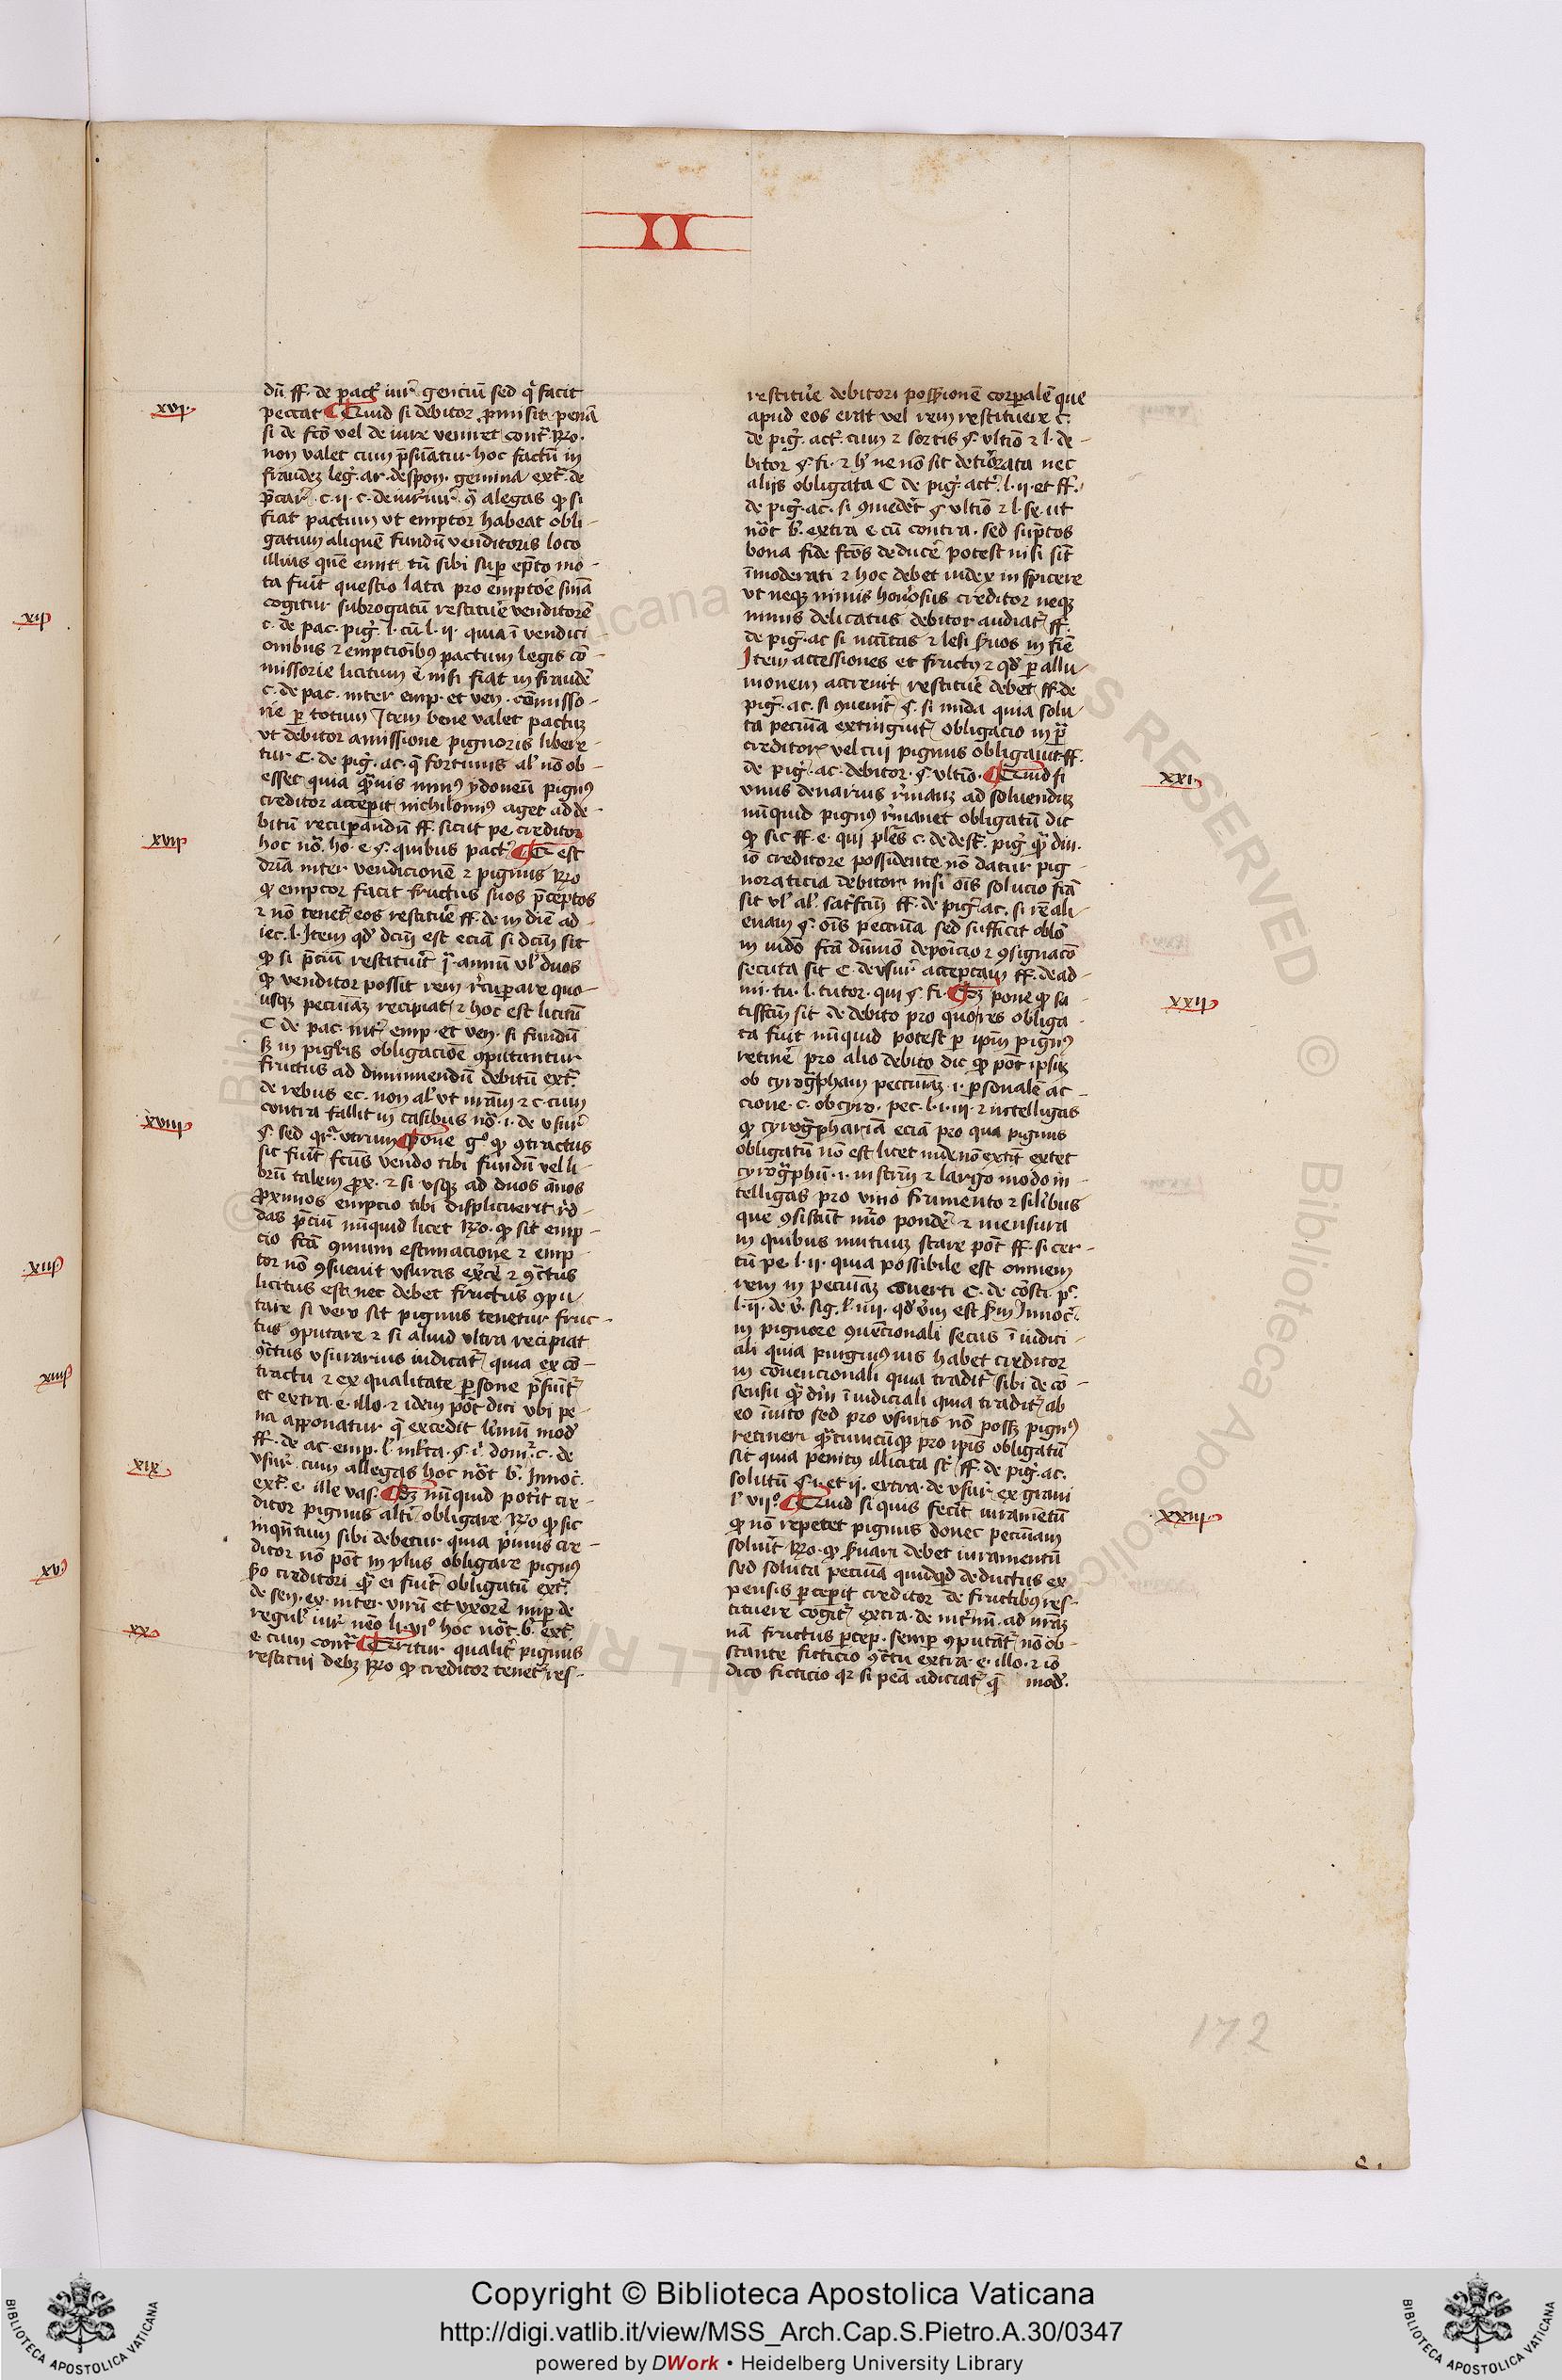 II
dū ff. de pact̄ iur̄ genciū sed q̄ facit
xvi
peccat Quid si debitor ꝓmisit penā
si de fc̄o vel de iure veniret cont̄ Rº.
non valet cum p̄sūatur hoc factū in
fraudeꝫ leḡ. ar. de spon. gemina ext̄. de
p̄car̄. c. ii. c. de iureiur̄. q̄ alegas ꝙ si
fiat pactum ut emptor habeat obli-
gatum aliquē fundū venditoris loco
illius quē emit tū sibi suꝑ ep̄to mo-
ta fuīt questio lata pro emptoē sn̄ia
cogitur subrogatū restituē venditorē
c. de pac. piḡ. l. cū l. ii. quia ī vendici
onibus ⁊ emptiōibꝰ pactum legis cō-
missorie licitum ē nisi fiat in fraudē
c. de pac. inter emp. et ven. cōmisso-
rie ꝑ totum Item bene valet pactuꝫ
vt debitor amissione pignoris libere-
tur C. de piḡ. ac. q̄ fortuitis al̄ nō ob-
esset quia q̄uis minꝰ ydoneū pignꝰ
creditor acceꝑit nichilominꝰ aget ad de-
bitū recuꝑandū ff. si cert pe creditor
xvii
hoc nō. ho. e. §. quibus pact̄ Qͥ est
dr̄ia inter vendicionē ⁊ pignus Rº
ꝙ emptor facit fructus suos ꝑceptos
⁊ nō tenet̄ eos restituē ff. de in diē ad-
iec. l. Item qd̄ dcm̄ est eciā si dcm̄ sit
ꝙ si p̄ciū restituīt ī annū vl̄ duos
ꝙ venditor possit rem rēcuꝑare quo-
usqꝫ pecuīaꝫ recipiat ⁊ hoc est licitū
C de pac. int̄ emp. et ven. si fundū
sꝫ in piḡris obligacioē ꝯputantur
fructus ad diminuendū debitū ext̄.
de rebus ec. non al̄ ut nr̄am ⁊ c. cum
xviii
contra fallit in casibus nō. i. de usur̄
§. sed qr̄. utrum Pone gº ꝙ ꝯtractus
sic fuīt fc̄us vendo tibi fundū vel li-
brū talem p̄x. ⁊ si usqꝫ ad duos ānos
ꝓximos empcio tibi displicuerit r̄d-
das p̄ciū nūquid licet Rº. ꝙ sit emp-
cio fc̄ā ꝯmum estimacione ⁊ emp-
tor nō ꝯsuevit usuras exc̄ē ⁊ ꝯc̄tus
licitus est nec debet fructus ꝯpu-
tare si vero sit pignus tenetur fruc-
tus ꝯputare ⁊ si aliud ultra recipiat
ꝯc̄tus usurarius iudicat̄ quia ex cō-
tractu ⁊ ex qualitate ꝑsone p̄sūit̄
et extra. e. illo. ⁊ idem pōt dici ubi pe-
na apponatur q̄ excedit
ff. de ac emp. l.
xix
usur̄. cum allegas hoc nōt b̄. Innoc̄.
ext̄. e. ille vas. Sꝫ nūquid potīt cre-
ditor pignus altī obligare Rº ꝙ sic
inqn̄tum sibi debetur quia p̄mus cre-
ditor nō pōt in plus obligare pignꝰ
creditori q̄ ei fuīt obligatū ext̄.
de sen. ex. inter virū et uxorē
xx
regul̄ iur̄. nēo li. viº hoc nōt. b̄. ext̄.
e. cum cont̄ Queritur qualit̄ pignus
restitui debꝫ Rº ꝙ creditor tenet̄ res-
restituē debitori possꝫionē corꝑalē que
apud eos erat vel rem restituere c.
de piḡ. act̄. cum ⁊ sortis §. ultiō ⁊ l. de-
bitor §. fi. ⁊ h̄ ne nō sit detīorata nec
alijs obligata C de piḡ. act̄. l. ii. et ff.
de piḡ. ac. si ꝯvenēt § ultiō ⁊ l. se. ut
nōt b̄. extra e. cū contra. sed sūptos
bona fide fc̄os deducē potest nisi sit
īmoderati ⁊ hoc debet iudex inspicere
ut neqꝫ nimis honosus creditor neqꝫ
nimis delicatus debitor audiat̄ ff.
de piḡ. ac si ⁊ lesi ꝓuos in fiē
Item accessiones et fructꝰ ⁊ qd̄ ꝑ allu-
uionem accrevit restituē debet ff. de
piḡ. ac. si ꝯvenit̄ §. si nuda quia solu-
ta pecuīa extinguit̄ obligacio in p̄
creditor̄ vel cui pignus obligaūt ff.
xxi
de piḡ. ac. debitor. §. ultiō. Quid si
unus denarius r̄maīꝫ ad solvenduꝫ
nūquid pignꝰ r̄manet obligatū dic
ꝙ sic ff. e. qui pl̄es c. de dest̄. piḡ. q̄ diu.
iō creditore possidente nō datur pig-
noraticia debitori nisi oīs solucio fc̄ā
sit vl̄ al̄ satisfc̄m̄ ff. de piḡ. ac. si rē ali-
enam §. oīs pecuīa sed sufficit oblō
in iudō fc̄ā dūmō deposicio ⁊ ꝯsignacō
secuta sit C. de usur̄ acceptam ff. de ad-
xxii
mi. tu. l. tutor. qui §. fi. Sꝫ pone ꝙ sa-
tisfc̄m̄ sit de debito pro quo res obliga-
ta fuit nūquid potest ꝑ ipm̄ pignꝰ
retinē pro alio debito dic ꝙ pōt ipsuꝫ
ob cyroḡpham peccuīaꝫ. i. ꝑsonalē ac-
cione. c. ob cyro. pec. l. i. iii. ⁊ intelligas
ꝙ cyroḡphariā eciā pro qua pignus
obligatū nō est licet inde nō extīt extet
cyroḡphū. i. instrm̄ ⁊ largo modo in-
telligas pro vino frumento ⁊ silibus
que ꝯsistūt nūo pondē ⁊ mensura
in quibus mutuuꝫ stare pōt ff. si cer-
tū pe. l. ii. quia possibile est omnem
rem in pecuīaꝫ ꝯverti C. de cōsti. pͨ.
l. ii. de v̄. sig. l. iiii. qd̄ v̄m est ẜm Innoc̄.
in pignore ꝯvēcionali secus ī iudici-
ali quia pinguiꝰ ius habet creditor
in cōvencionali quia tradit̄ sibi de cō-
sensu q̄ dn̄i ī iudiciali quia tradit̄ ab
eo īvito sed pro usuris nō possꝫ pignꝰ
retineri q̄tumcūqꝫ pro ipīs obligatū
sit quia penitꝰ illicita st̄ ff. de piḡ. ac.
solutū §. i. et ii. extra. de usur̄. ex gravi
xxiii
l. viiº. Quid si quis fecīt iuramentū
ꝙ nō repetet pignus donec pecuīam
solvīt Rº. ꝙ ẜvari debet iuramentū
sed soluta pecuīa quidqd̄ deductis ex-
pensis ꝑcepit creditor de fructibꝰ res-
tituere cogīt̄ extra. de iur̄iur̄. ad nr̄aꝫ
nā fructus ꝑcep. semꝑ ꝯputāt̄ nō ob-
stante ficticio ꝯc̄tu extra. e. illo. ⁊ iō
dico ficticio qꝛ si peā adiciat̄ q̄ mod̄.
xii
xiii
xiiii
xv
172
Copyright © Biblioteca Apostolica Vaticana
http://digi.vatlib.it/view/MSS_Arch.Cap.S.Pietro.A.30/0347
powered by DWork • Heidelberg University Library
BIBLIOTECA APOSTOLICA VATICANA
BIBLIOTECA APOSTOLICA VATICANA